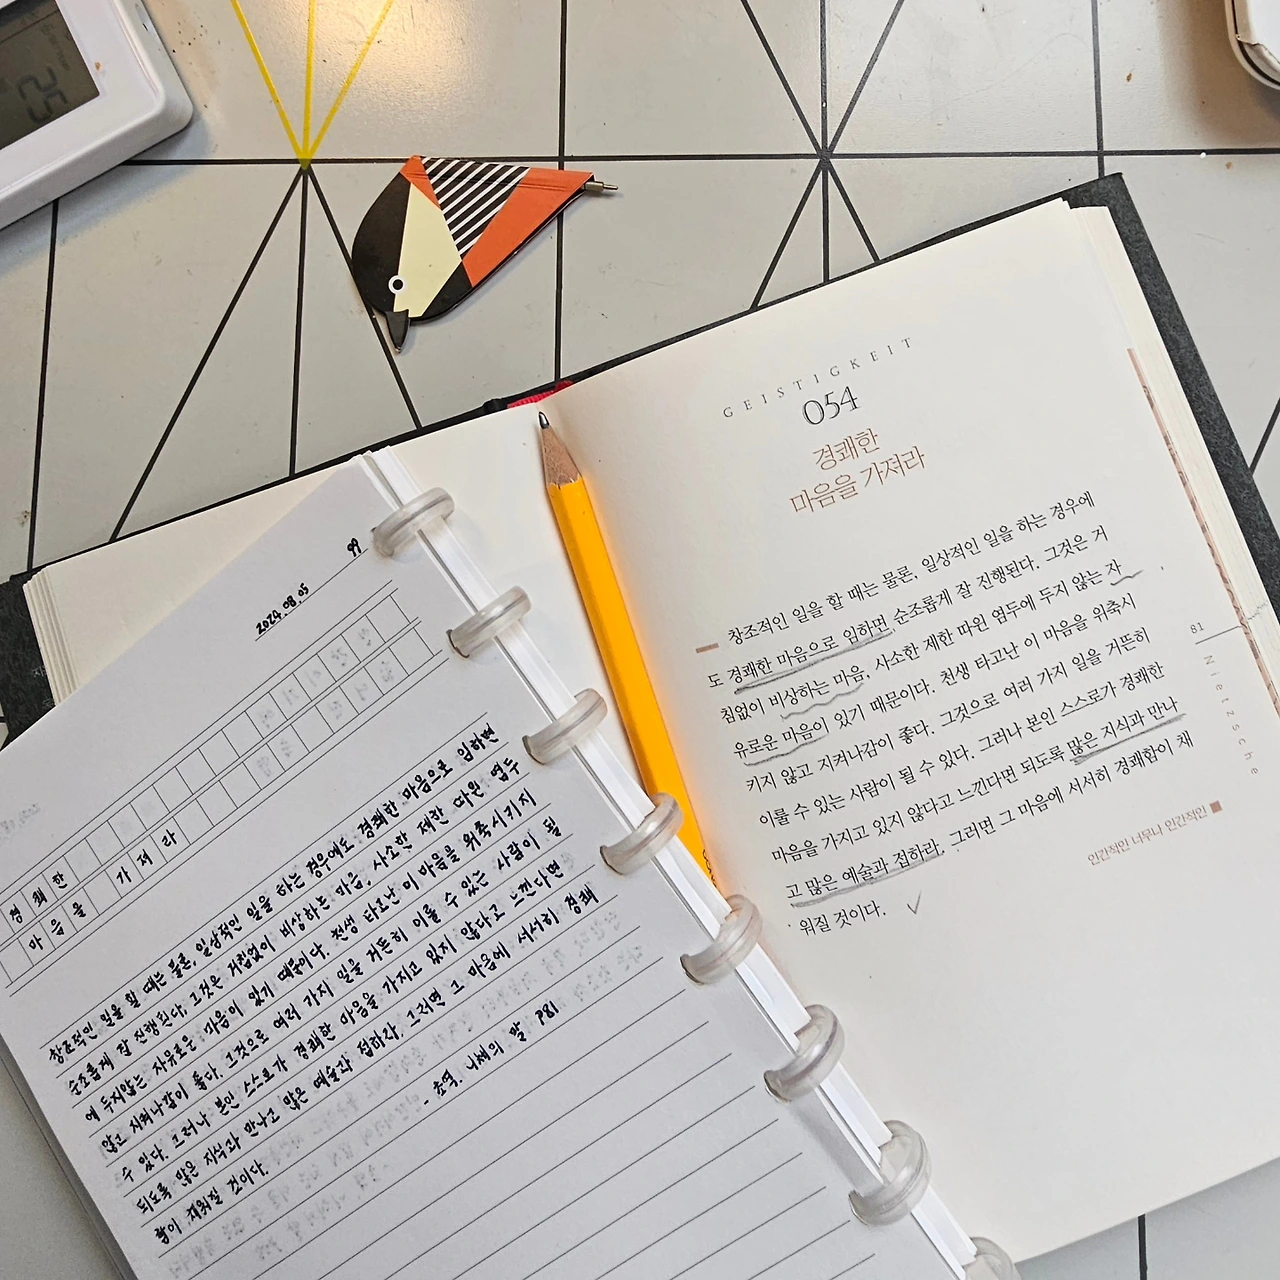 25
99
2024.08.05
경쾌한
마음을 가져라
창조적인 일을 할 때는 물론, 일상적인 일을 하는 경우에도 경쾌한 마음으로 임하면
순조롭게 잘 진행된다. 그것은 거침없이 비상하는 마음, 사소한 제한 따윈 염두
에 두지않는 자유로운 마음이 있기 때문이다. 천생 타고난 이 마음을 위축시키지
않고 지켜나감이 좋다. 그것으로 여러 가지 일을 거뜬히 이룰 수 있는 사람이 될
수 있다. 그러나 본인 스스로가 경쾌한 마음을 가지고 있지 않다고 느낀다면
되도록 많은 지식과 만나고 많은 예술과 접하라. 그러면 그 마음에 서서히 경쾌
함이 채워질 것이다.
- 초역. 니체의 말 P81
GEISTIGKEIT
054
경쾌한
마음을 가져라
창조적인 일을 할 때는 물론, 일상적인 일을 하는 경우에
도 경쾌한 마음으로 임하면 순조롭게 잘 진행된다. 그것은 거
침없이 비상하는 마음, 사소한 제한 따윈 염두에 두지 않는 자
유로운 마음이 있기 때문이다. 천생 타고난 이 마음을 위축시
키지 않고 지켜나감이 좋다. 그것으로 여러 가지 일을 거뜬히
이룰 수 있는 사람이 될 수 있다. 그러나 본인 스스로가 경쾌한
마음을 가지고 있지 않다고 느낀다면 되도록 많은 지식과 만나
고 많은 예술과 접하라. 그러면 그 마음에 서서히 경쾌함이 채
워질 것이다.
인간적인 너무나 인간적인
81
Nietzsche